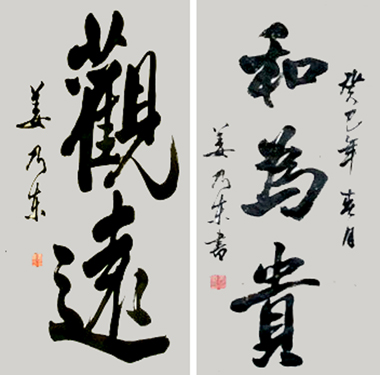 觀遠
姜乃東
癸巳年春月
和為貴
姜乃東書